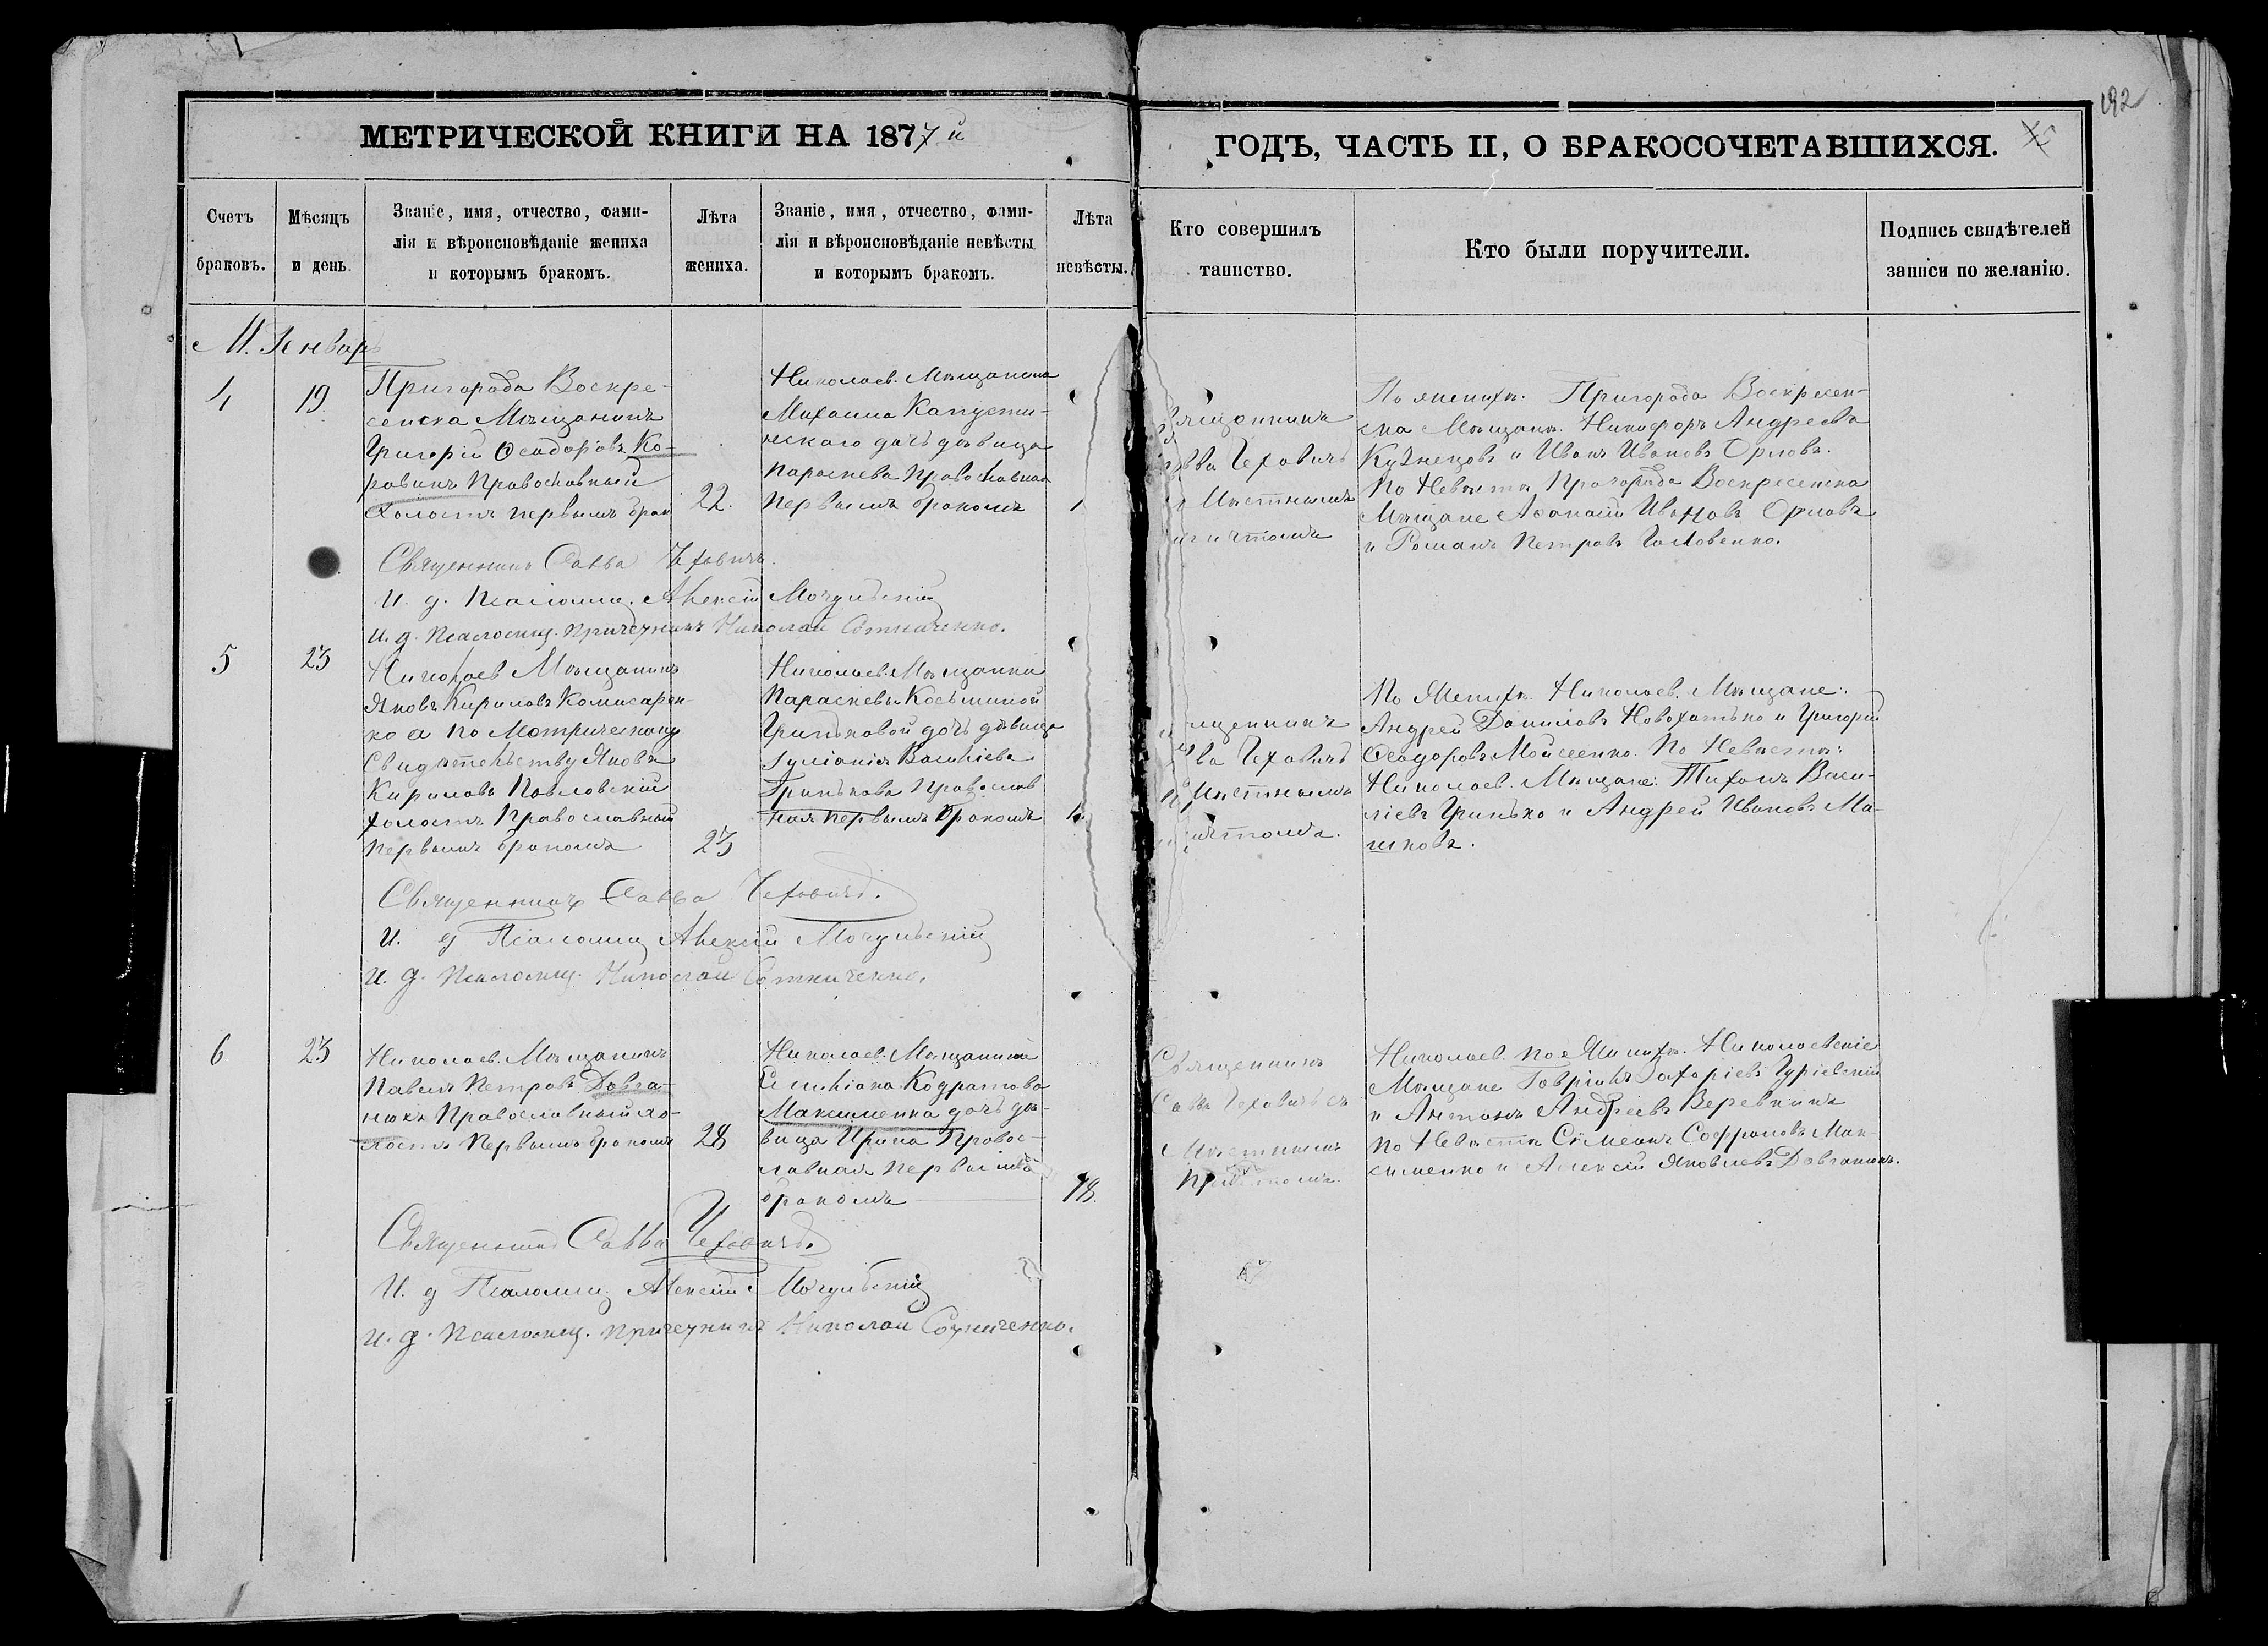 192
МЕТРИЧЕСКОЙ КНИГИ НА 1877 й
ГОДЪ, ЧАСТЬ II, О БРАКОСОЧЕТАВШИХСЯ.
Счетъ
браковъ.
Мѣсяцъ
и день.
Званіе, имя, отчество, фами-
лія и вѣроисповѣданіе жениха
и которымъ бракомъ.
Лѣта
жениха.
Званіе, имя, отчество, фами-
лія и вѣроисповѣданіе невѣсты
и которымъ бракомъ.
Лѣта
невѣсты.
Кто совершилъ
таинство.
Кто были поручители.
Подпись свидѣтелей
записи по желанію.
М. Январь
4
19
Пригорода Воскре-
сенска Мѣщанинъ
Григорій Ѳеодоровъ Ко-
ровинъ Православный
холостъ первымъ брак
22.
Николаев. Мѣщанина
Михаила Капусти-
нскаго дочь дѣвица
Параскева Православная
Первымъ бракомъ
1
Чеховичъ
Мѣстнымъ
По жениху. Пригорода Воскресен-
ска Мѣщане. Никифоръ Андреевъ
Кузнецовъ и Иванъ Ивановъ Орловъ.
По Невѣстѣ Пригорода Воскресенска
Мѣщане Аѳанасій Ивановъ Орловъ
и Романъ Петровъ Головенко.
Священникъ Савва Чеховичъ.
И. д. Псаломщ. Алексій Мочульскій
И. д. Псаломщ. Причетникъ Николай Сотниченко.
5
23
Николаев Мѣщанинъ
Яковъ Кириловъ Комисарен-
ко а по Метрическому
Свидѣтельству Яковъ
Кириловъ Павловскій
холостъ Православный
Первымъ бракомъ
23
Николаев. Мѣщанки
Параскевы Косьминой
Гриньковой дочь дѣвица
Іуліанія Василіева
Гринькова Православ
ная первымъ бракомъ
1
Чеховичъ
Мѣстнымъ
По Жениху. Николаев. Мѣщане:
Андрей Даниловъ Новохатько и Григорій
Ѳеодоровъ Мойсеенко. По Невѣстѣ:
Николаев. Мѣщане: Тихонъ Васи-
ліевъ Гринько и Андрей Ивановъ Ма-
шковъ.
Священникъ Савва Чеховичъ.
И. д Псаломщ Алексій Мочульскій
И. д. Псаломщ. Николай Сотниченко.
6
23
Николаев. Мѣщанинъ
Павелъ Петровъ Довга-
нюкъ Православный хо-
лостъ Первымъ бракомъ
28
Николаев. Мѣщанина
Емиліана Кодратова
Максименка дочь дѣ-
вица Ирина Правос-
лавная первымъ
бракомъ
18.
Священникъ
Савва Чеховичъ съ
Мѣстнымъ
Причтомъ.
Николаев. по Жениху. Николаевскіе
Мѣщане Гавріилъ Захаріевъ Гуріевскій
и Антонъ Андреевъ Веревкинъ
По Невѣстѣ Симеонъ Софроновъ Мак-
сименко и Алексій Яковлевъ Довганюкъ.
Священникъ Савва Чеховичъ.
И. д Псаломщ. Алексій Мочульскій
И. д. Псаломщ. Причетникъ Николай Сотниченко.